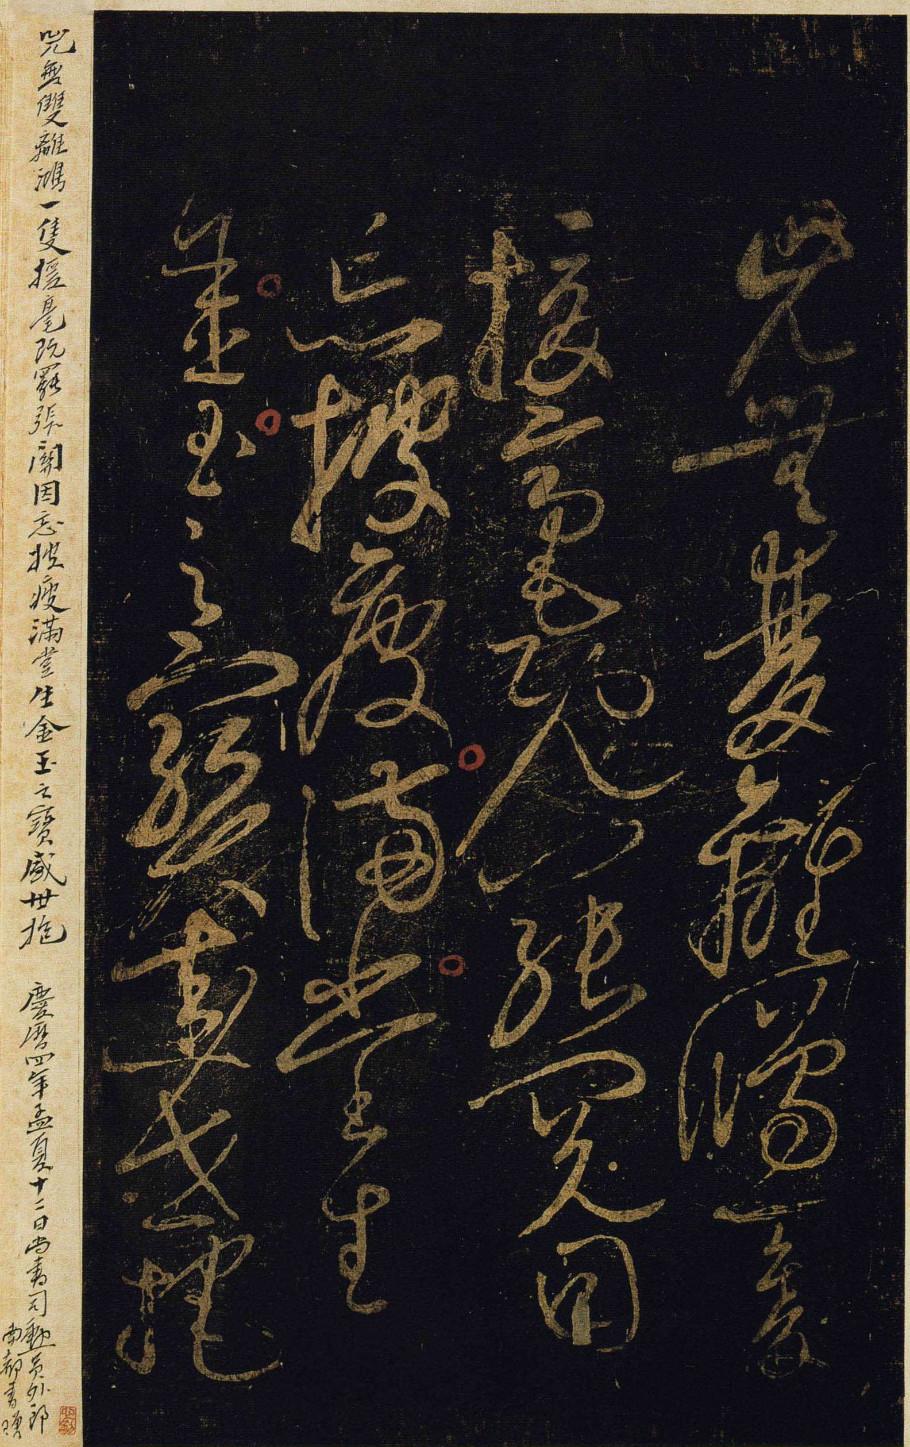 兕無雙離鴻一隻
援毫既罷張關因
忘披瘦滿堂生
金玉之寶盛世抱
兕無雙離鴻一隻援毫既罷張關因忘披瘦滿堂生金玉之寶盛世抱 慶曆四年孟夏十二日尚書司勳員外郎
南都書